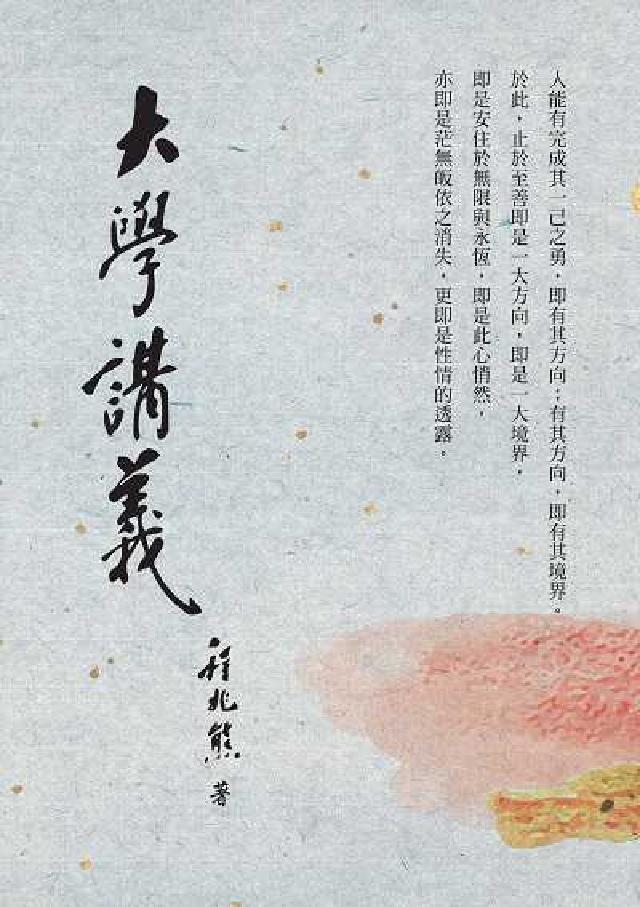 人能有完成其一己之勇，即有其方向；有其方向，即有其境界。
於此，止於至善即是一大方向，即是一大境界，
即是安住於無限與永恆，即是此心悄然，
亦即是茫無皈依之消失，更即是性情的透露。
大學講義
程兆熊 著